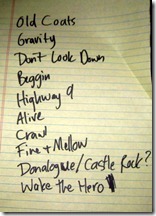 Old Coats
Gravity
Don't Look Down
Beggin
Highway 9
Alive
Crawl
Fine + Mellow
Donalogue/Castle Rock?
Wake the Hero